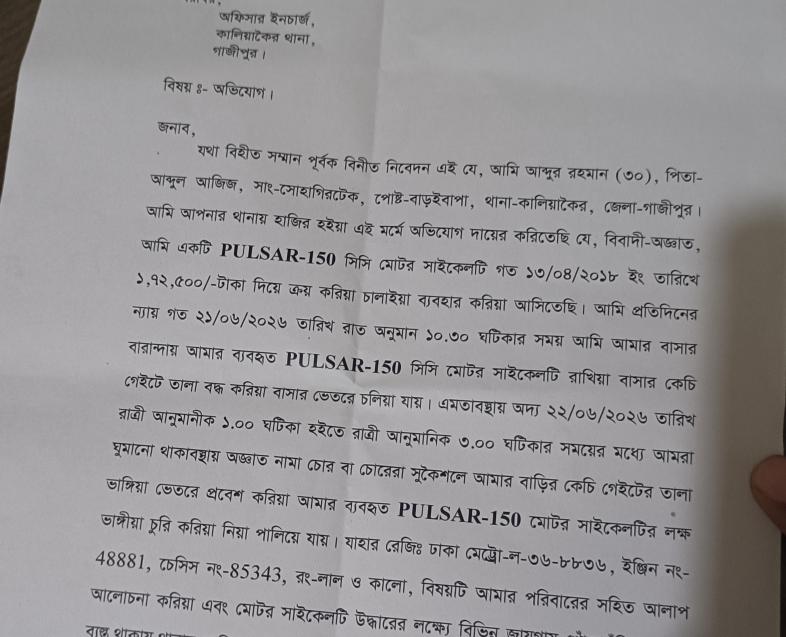 অফিসার ইনচার্জ,
কালিয়াকৈর থানা,
গাজীপুর।
বিষয় ঃ- অভিযোগ।
জনাব,
যথা বিহীত সম্মান পূর্বক বিনীত নিবেদন এই যে, আমি আব্দুর রহমান (৩০), পিতা-
আব্দুল আজিজ, সাং-মোহাগিরটেক, পোষ্ট-বাড়ইবাপা, থানা-কালিয়াকৈর, জেলা-গাজীপুর।
আমি আপনার থানায় হাজির হইয়া এই মর্মে অভিযোগ দায়ের করিতেছি যে, বিবাদী-অজ্ঞাত,
আমি একটি PULSAR-150 সিসি মোটর সাইকেলটি গত ১৩/০৪/২০১৮ ইং তারিখে
১,৭২,৫০০/-টাকা দিয়ে ক্রয় করিয়া চালাইয়া ব্যবহার করিয়া আসিতেছি। আমি প্রতিদিনের
ন্যায় গত ২১/০৬/২০২৬ তারিখ রাত অনুমান ১০.৩০ ঘটিকার সময় আমি আমার বাসার
বারান্দায় আমার ব্যবহৃত PULSAR-150 সিসি মোটর সাইকেলটি রাখিয়া বাসার কেচি
গেইটে তালা বদ্ধ করিয়া বাসার ভেতরে চলিয়া যায়। এমতাবস্থায় অদ্য ২২/০৬/২০২৬ তারিখ
রাত্রী আনুমানীক ১.০০ ঘটিকা হইতে রাত্রী আনুমানিক ৩.০০ ঘটিকার সময়ের মধ্যে আমরা
ঘুমানো থাকাবস্থায় অজ্ঞাত নামা চোর বা চোরেরা সুকৌশলে আমার বাড়ির কেচি গেইটের তালা
ভাঙ্গিয়া ভেতরে প্রবেশ করিয়া আমার ব্যবহৃত PULSAR-150 মোটর সাইকেলটির লক্ষ
ভাঙ্গীয়া চুরি করিয়া নিয়া পালিয়ে যায়। যাহার রেজিঃ ঢাকা মেট্রো-ল-৩৬-৮৮৩৬, ইঞ্জিন নং-
48881, চেসিস নং-85343, রং-লাল ও কালো, বিষয়টি আমার পরিবারের সহিত আলাপ
আলোচনা করিয়া এবং মোটর সাইকেলটি উদ্ধারের লক্ষ্যে বিভিন্ন